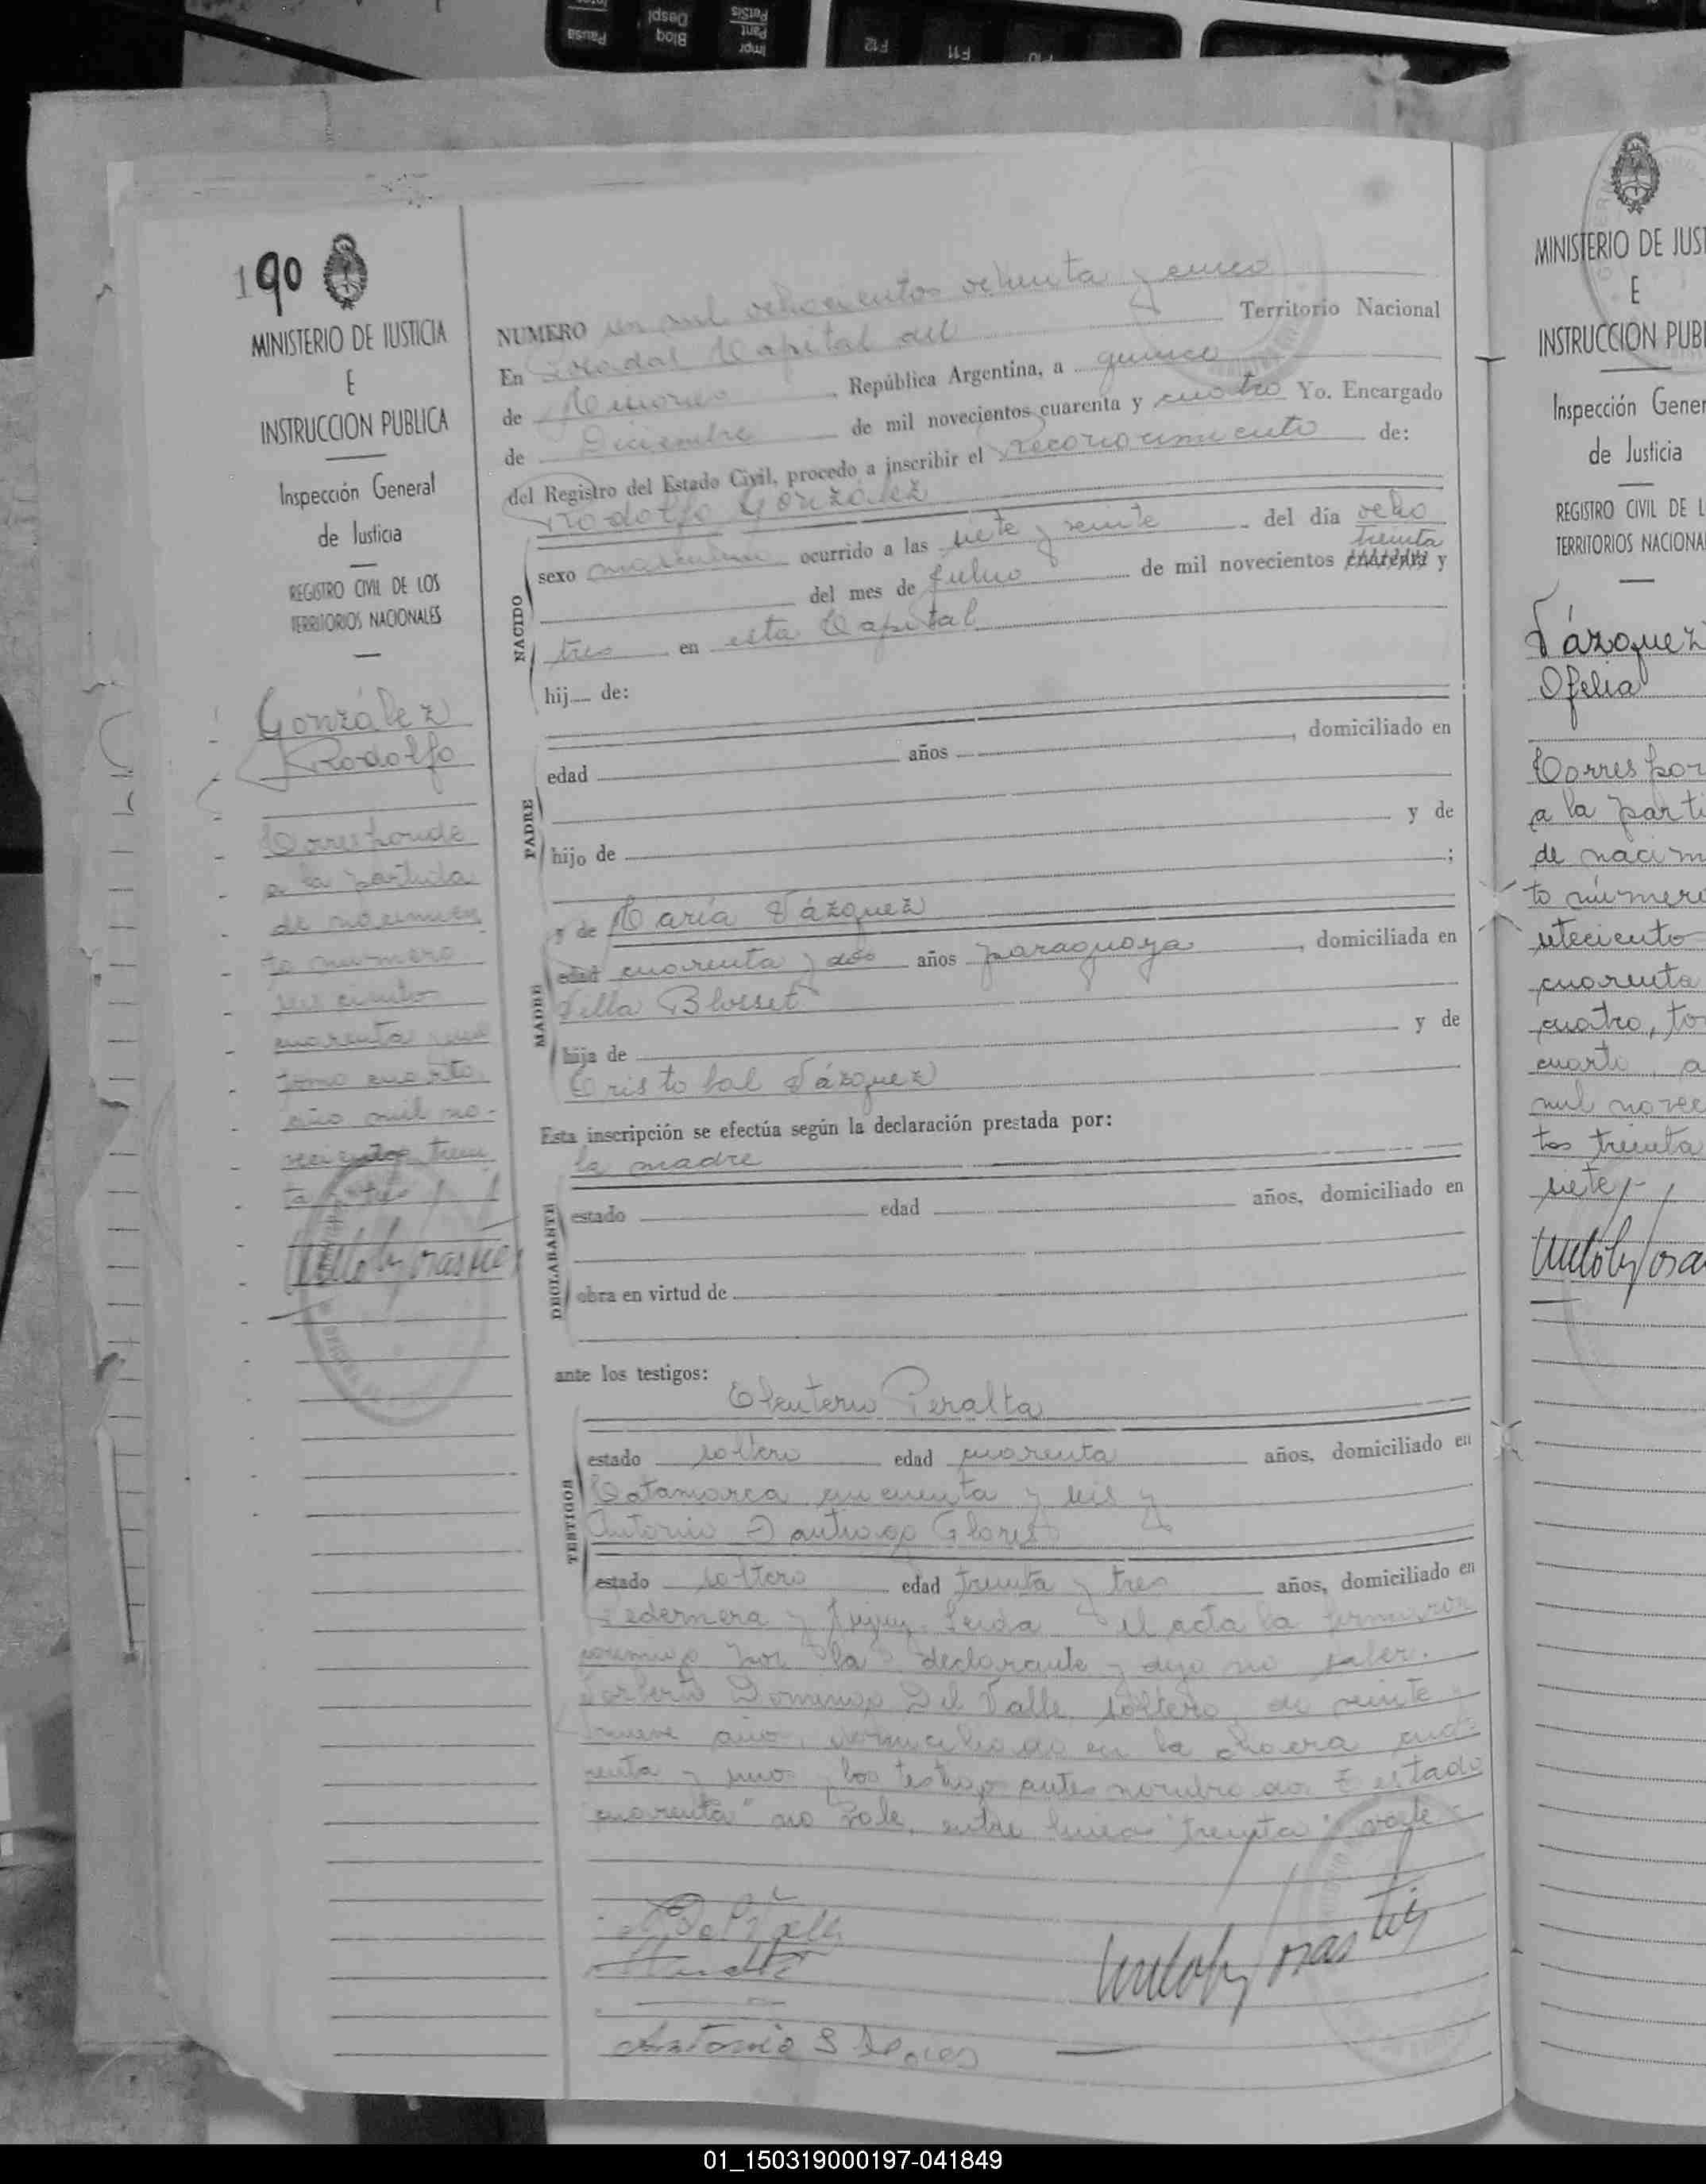 190
MINISTERIO DE JUSTICIA
E
INSTRUCCION PUBLICA
Inspección General
de Justicia
REGISTRO CIVIL DE LOS
TERRITORIOS NACIONALES
González
Rodolfo
Corresponde
a la partida
de nacimien
to número
seis ciento
cuarenta y uno
tomo cuarto
año mil no-
vecientos trein
ta y tres
NUMERO un mil ochocientos ochenta y cinco
En Posadas Capital del Territorio Nacional
de Misiones, República Argentina, a quince
de Diciembre de mil novecientos cuarenta y cuatro Yo. Encargado
del Registro del Estado Civil, procedo a inscribir el reconocimiento de:
Rodolfo González
NACIDO
sexo masculino ocurrido a las siete y veinte del día ocho
treinta
del mes de Julio de mil novecientos cuarenta y
tres en esta Capital
hij de:
PADRE
edad años , domiciliado en
hijo de y de
;
MADRE
y de María Vázquez
edad cuarenta y dos años paraguaya, domiciliada en
Villa Blosset
hija de y de
Cristobal Vázquez
Esta inscripción se efectúa según la declaración prestada por:
la madre
DECLARANTE
estado edad años, domiciliado en
obra en virtud de
ante los testigos:
Eleuterio Peralta
TESTIGOS
estado soltero edad cuarenta años, domiciliado en
Catamarca cincuenta y seis y
Antonio Santiago Flores
estado soltero edad treinta y tres años, domiciliado en
Pedernera y Jujuy. Leida el acta la firmaron
conmigo por la declarante y dijo no saber.
Domingo Del Valle, soltero, de veinte y
nueve años, domiciliado en la chacra cua-
renta y uno y los testigos antes nombrados. Testado
"cuarenta" no vale, entre lineas "treinta" vale
Antonio S Flores
MINISTERIO DE JUST
E
INSTRUCCION PUBL
Inspección Gener
de Justicia
REGISTRO CIVIL DE L
TERRITORIOS NACIONAL
Vázquez
Ofelia
Correspon
a la parti
de nacim
to número
seteciento
cuarenta
cuatro, to
cuarto, a
mil novec
tos treinta
siete.-
01_150319000197-041849